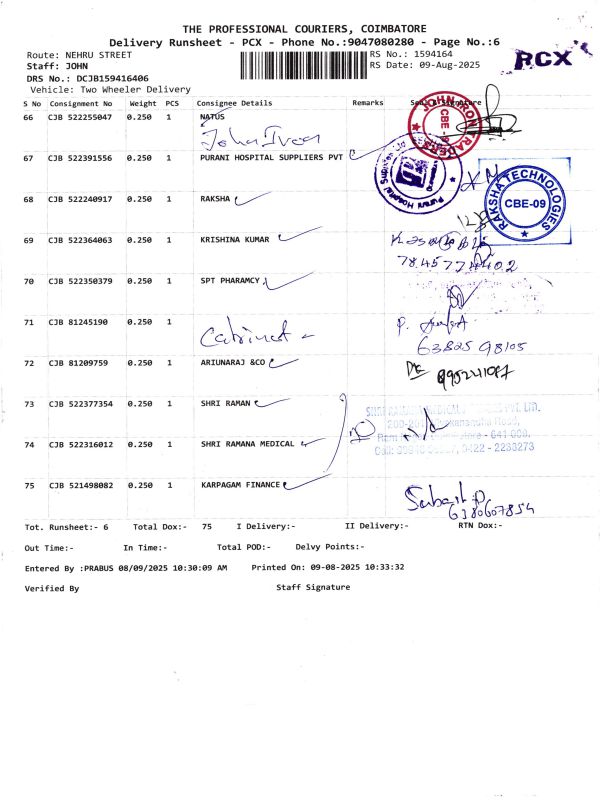 THE PROFESSIONAL COURIERS, COIMBATORE
Delivery Runsheet - PCX - Phone No.:9047080280 - Page No.:6
Route: NEHRU STREET
RS No.: 1594164
PCX
Staff: JOHN
RS Date: 09-Aug-2025
DRS No.: DCJB159416406
Vehicle: Two Wheeler Delivery
S No Consignment No Weight PCS Consignee Details Remarks Seal & Signature
66 CJB 522255047 0.250 1 NATUS
John Iron
JOHN IRON TRADERS
CBE - 9
67 CJB 522391556 0.250 1 PURANI HOSPITAL SUPPLIERS PVT
Purani Hospital Supplies
68 CJB 522240917 0.250 1 RAKSHA
RAKSHA TECHNOLOGIES
CBE-09
69 CJB 522364063 0.250 1 KRISHINA KUMAR
70 CJB 522350379 0.250 1 SPT PHARAMCY
71 CJB 81245190 0.250 1
Cabinet
63825 98105
72 CJB 81209759 0.250 1 ARIUNARAJ &CO
73 CJB 522377354 0.250 1 SHRI RAMAN
74 CJB 522316012 0.250 1 SHRI RAMANA MEDICAL
75 CJB 521498082 0.250 1 KARPAGAM FINANCE
6380607854
Tot. Runsheet:- 6 Total Dox:- 75 I Delivery:- II Delivery:- RTN Dox:-
Out Time:- In Time:- Total POD:- Delvy Points:-
Entered By :PRABUS 08/09/2025 10:30:09 AM Printed On: 09-08-2025 10:33:32
Verified By Staff Signature